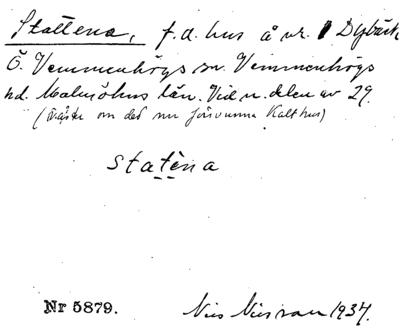 Stattena, f.d. hus å nr 1 Dybäck
Ö. Vemmenhögs sn Vemmenhögs
hd. Malmöhus län. Vid n. delen av 29.
(väster om det nu försvunna Kalthus)
statèna
Nr 5879.
Nils Nilsson 1937.